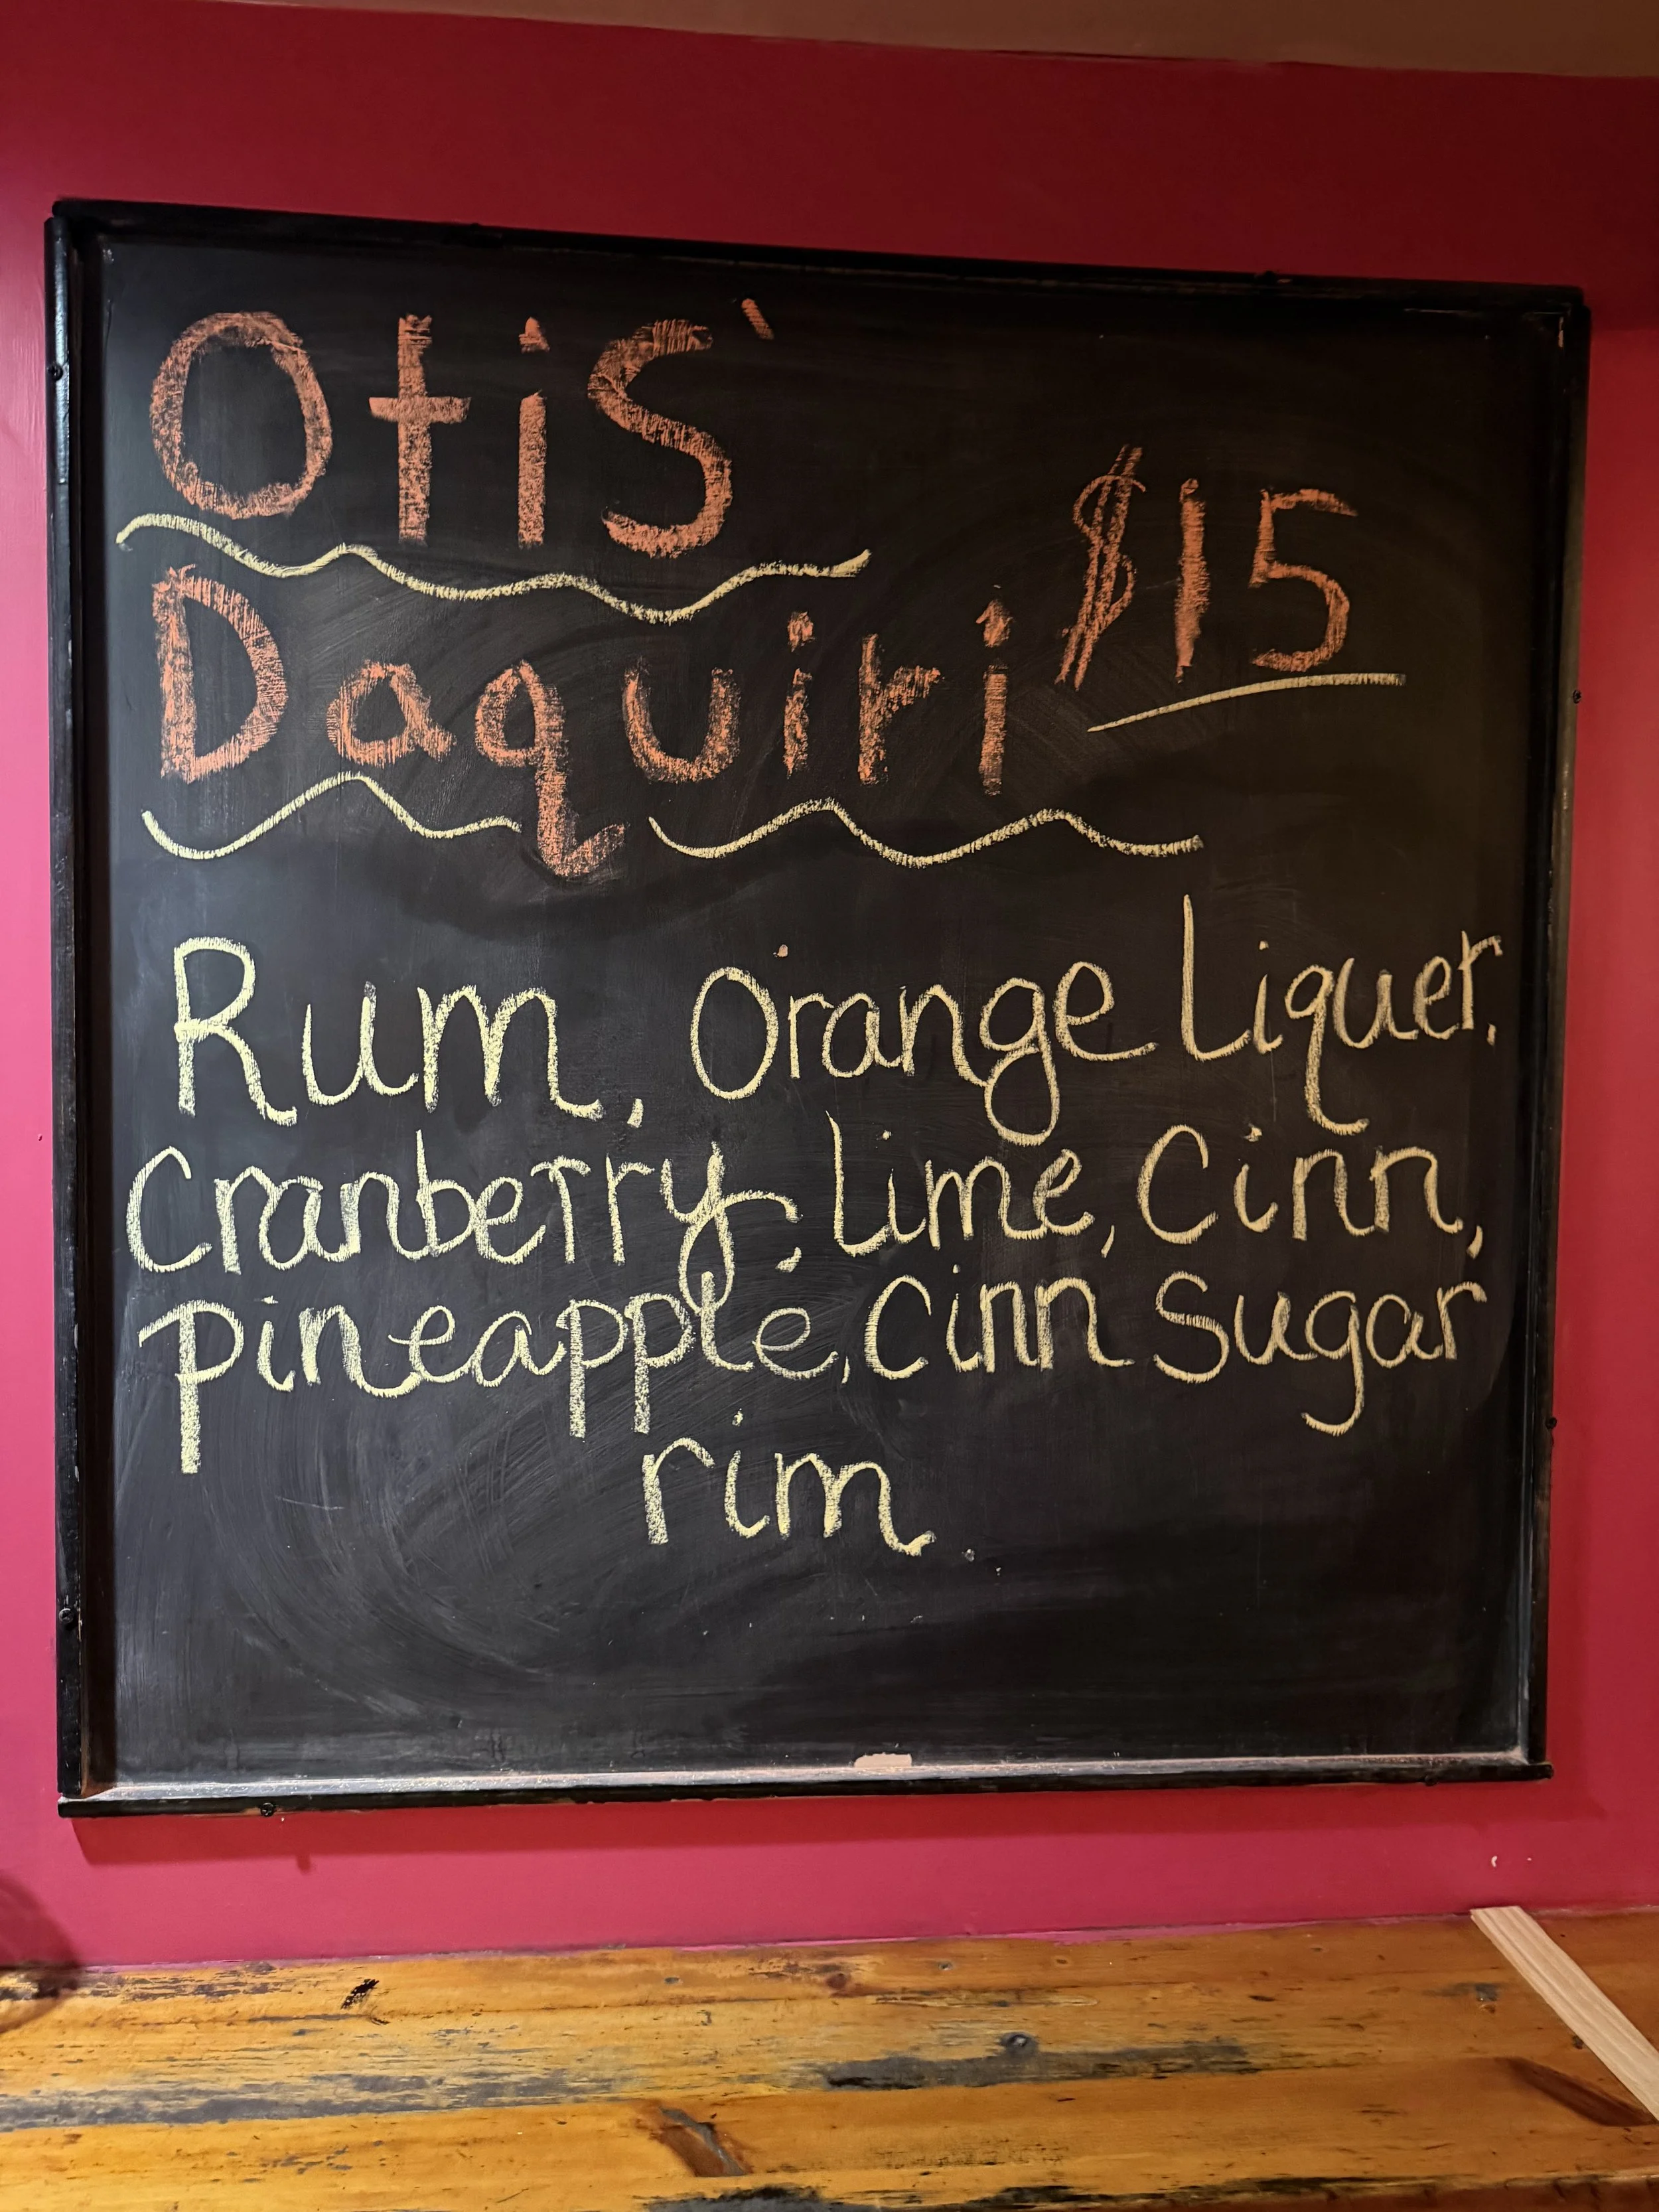 Otis'
Daquiri $15
Rum, Orange Liquer,
Cranberry, Lime, Cinn,
pineapple, Cinn Sugar
rim.